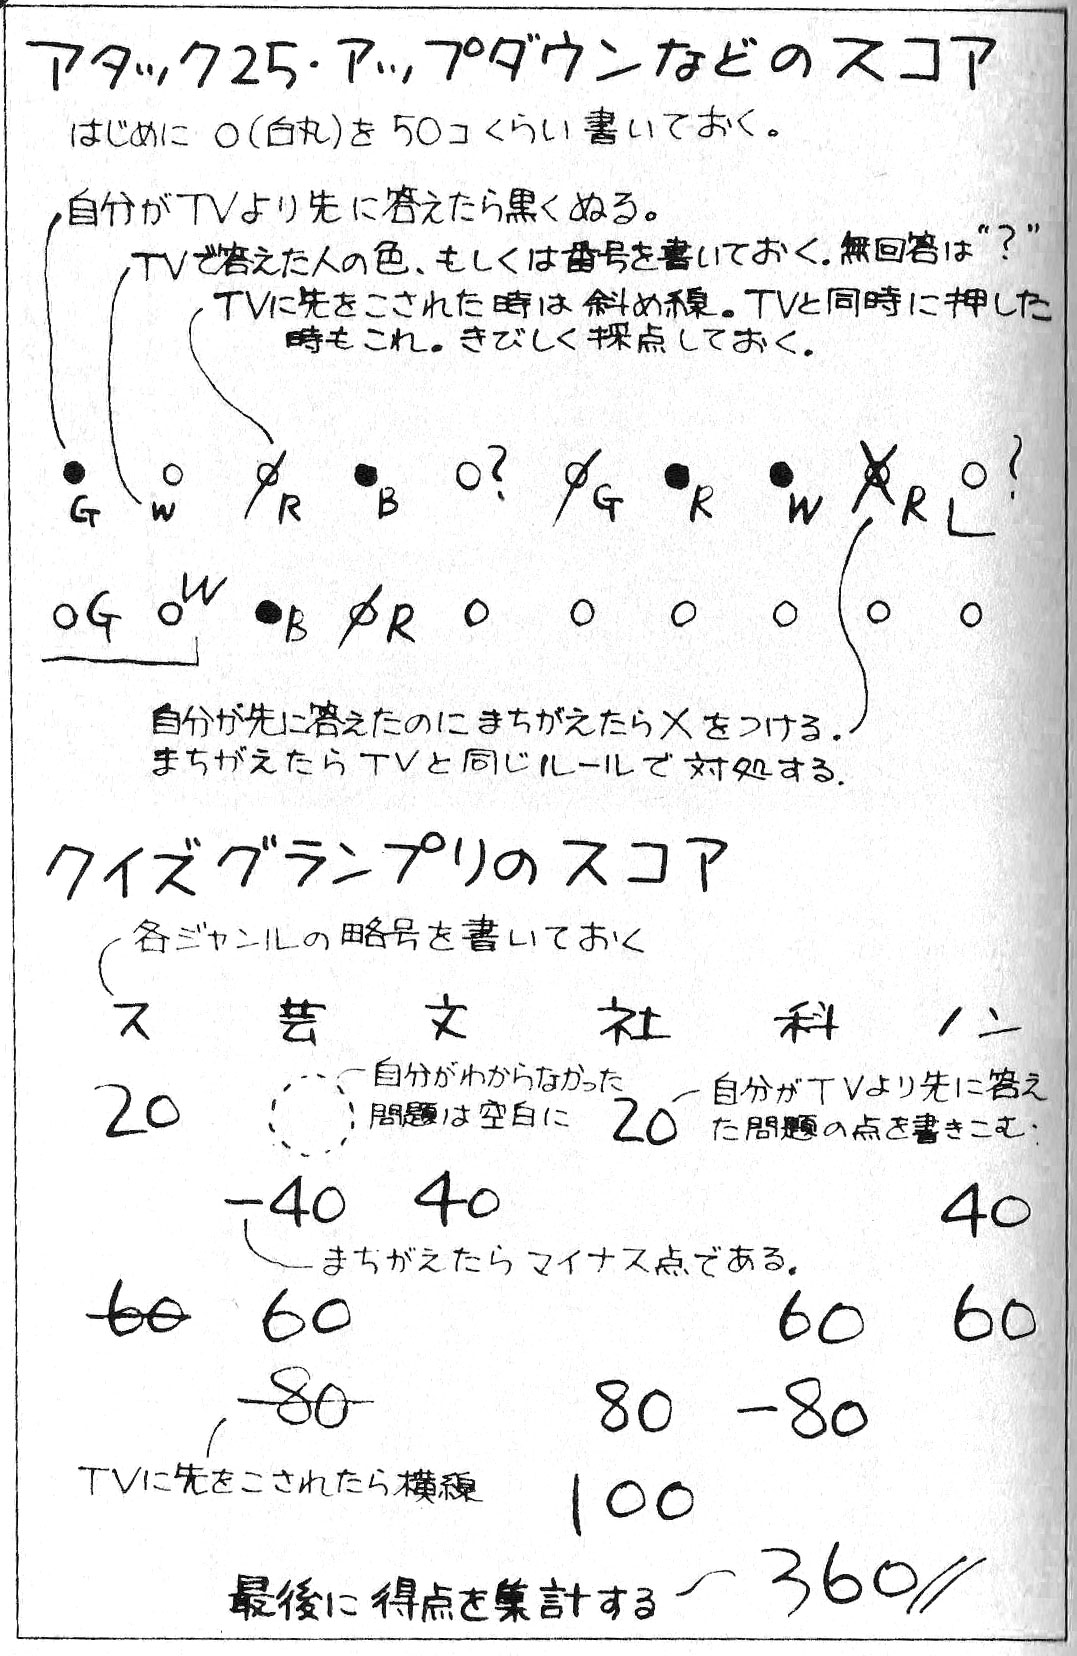 アタック25・アップダウンなどのスコア
はじめに ○(白丸)を 50コくらい 書いておく。
自分がTVより先に答えたら黒くぬる。
TVで答えた人の色、もしくは番号を書いておく。無回答は"?"
TVに先をこされた時は 斜め線。TVと同時に押した
時もこれ。きびしく採点しておく。
G W R B ? G R W R ?
G W B R
自分が先に答えたのに まちがえたら X をつける。
まちがえたら TVと同じルールで 対処する.
クイズグランプリのスコア
各ジャンルの略号を書いておく
ス 芸 文 社 科 ノン
自分がわからなかった
問題は空白に
自分がTVより先に答え
た問題の点を書きこむ.
20 20
-40 40 40
まちがえたらマイナス点である.
60 60 60 60
80 80 -80
TVに先をこされたら横線
100
最後に得点を集計する 360